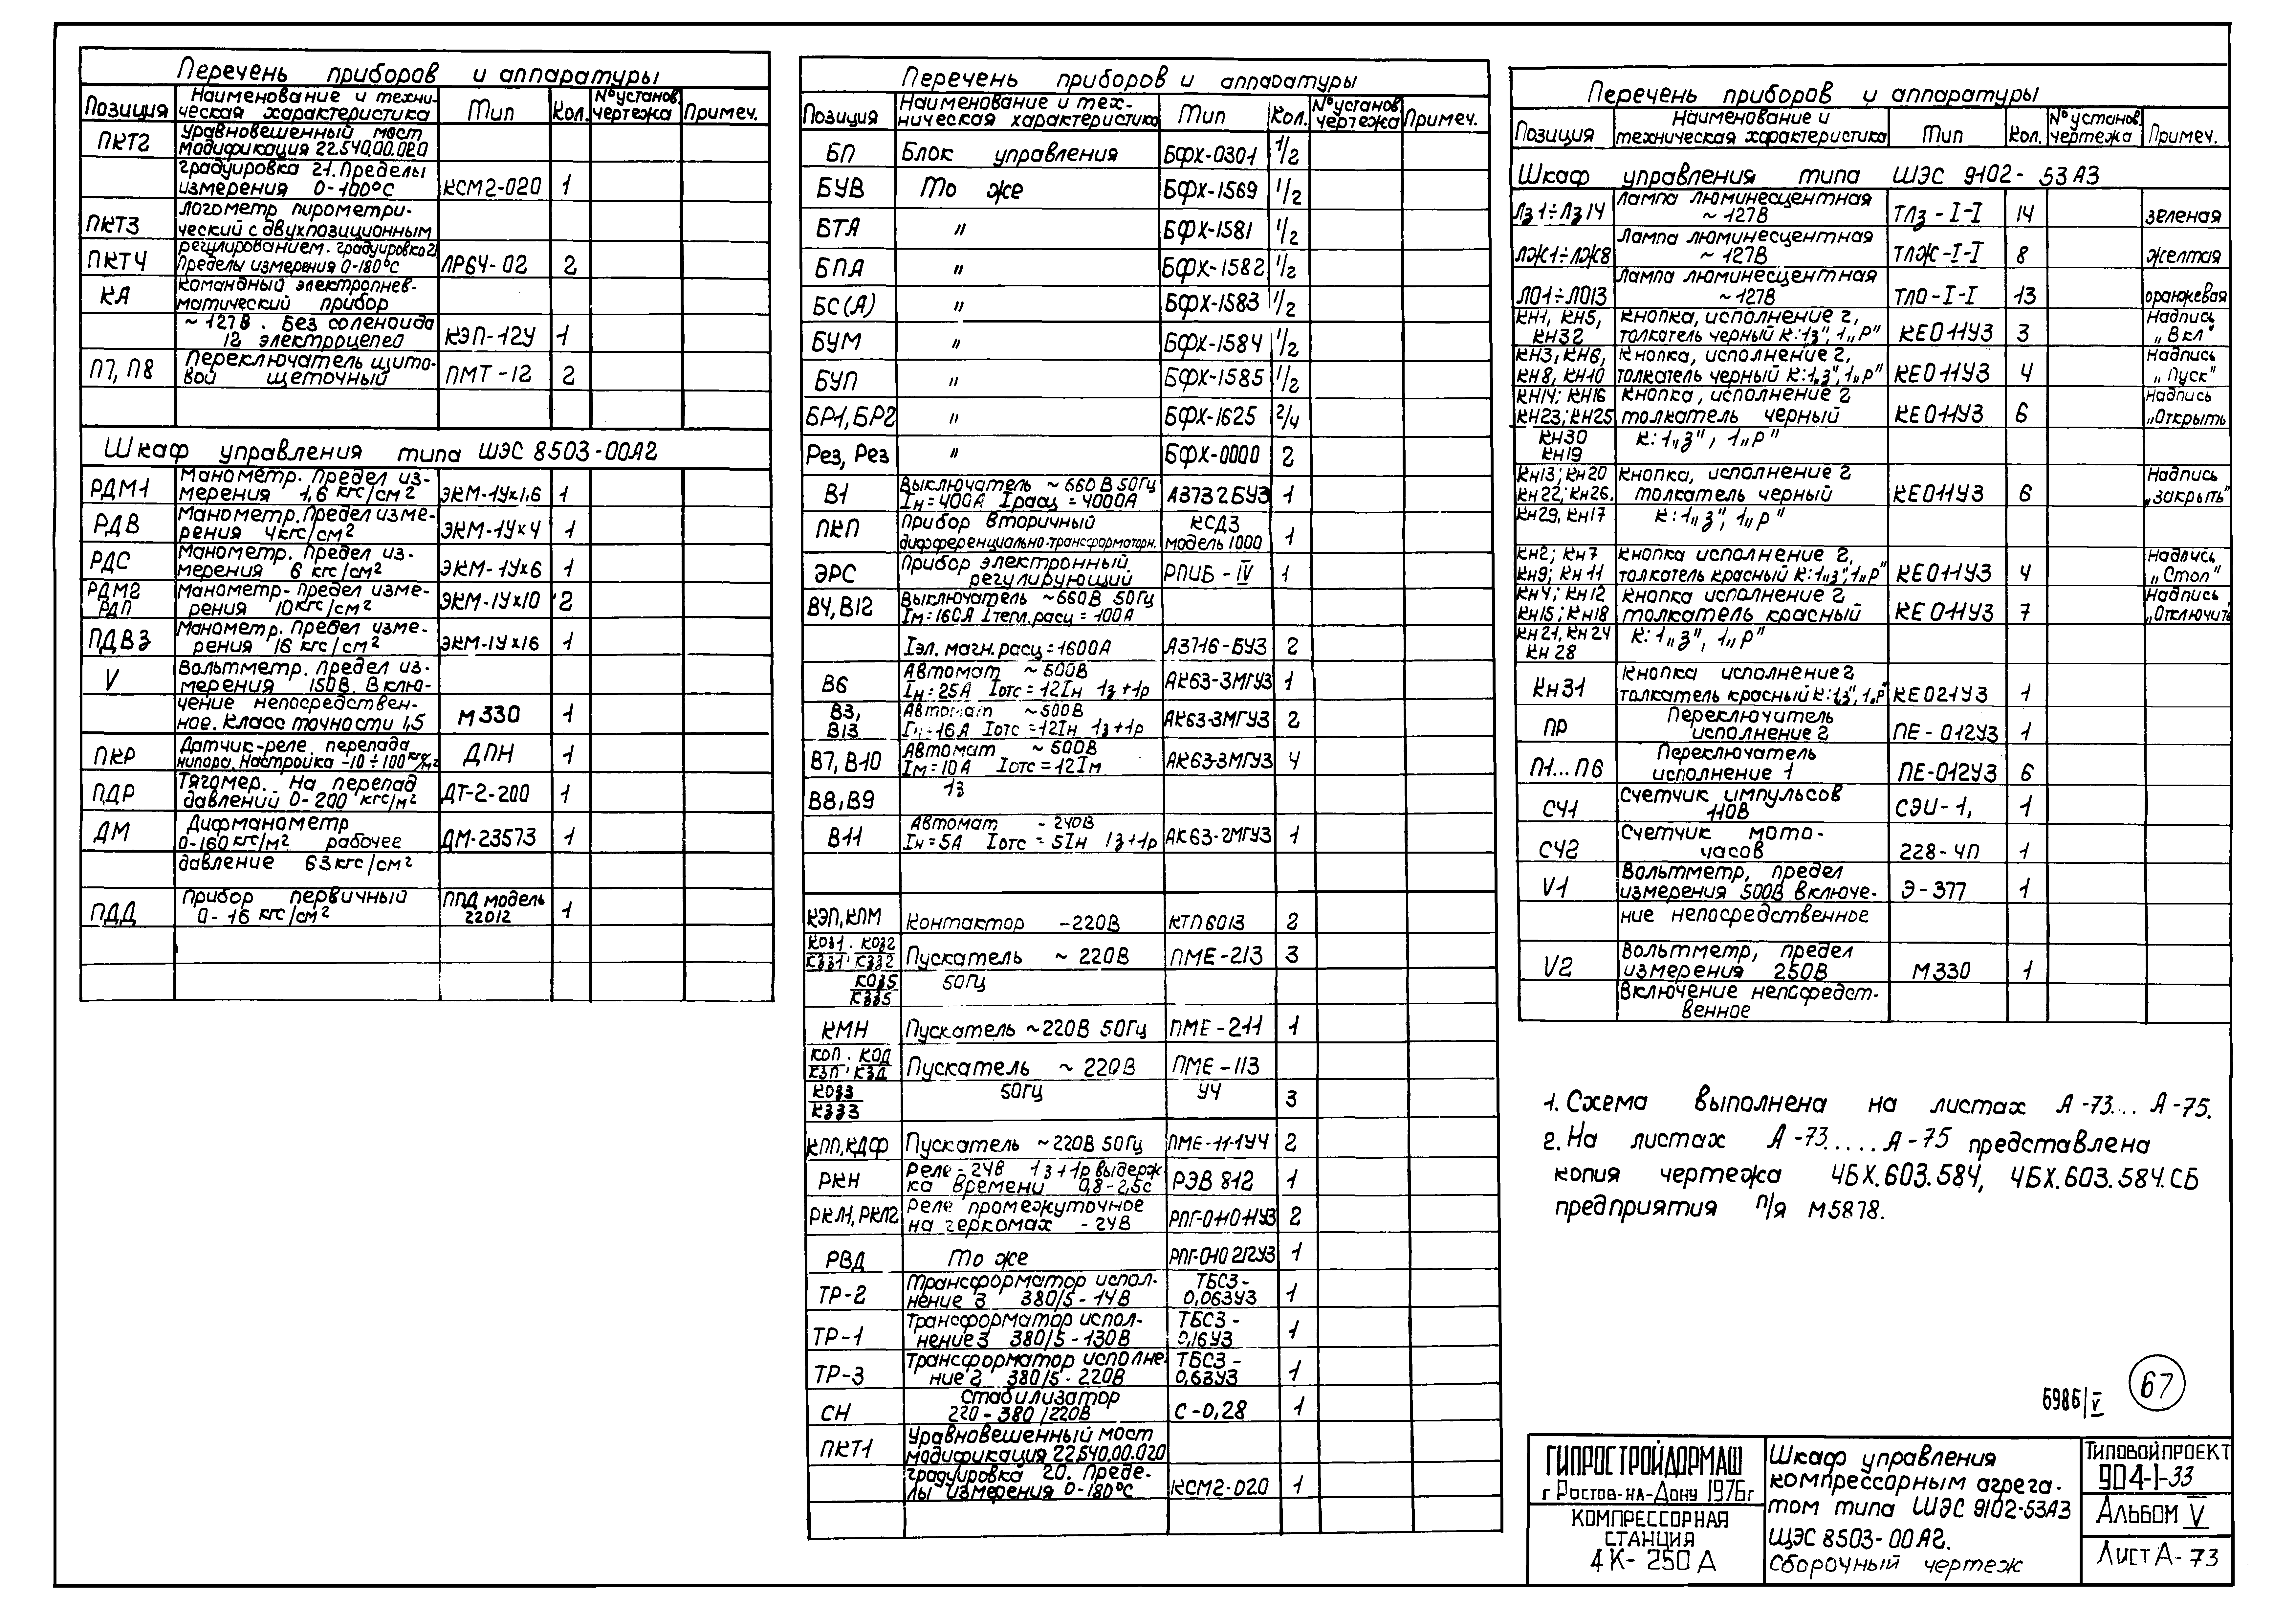 Перечень приборов и аппаратуры
Позиция | Наименование и техническая характеристика | Тип | Кол. | № установ. чертежа | Примеч.
ПКТ2 | Уравновешенный мост модификация 22.540.00.020
градуировка 21. Пределы измерения 0-100°С | КСМ2-020 | 1
ПКТ3 | Логометр пирометрический с двухпозиционным
ПКТ4 | регулированием. градуировка 21 Пределы измерения 0-180°С | ЛР64-02 | 2
КА | Командный электропневматический прибор
~127В. Без соленоида 12 электроцепей | КЭП-12У | 1
П7, П8 | Переключатель щитовой щеточный | ПМТ-12 | 2
Шкаф управления типа ШЭС 8503-00А2
РДМ1 | Манометр. Предел измерения 1,6 кгс/см2 | ЭКМ-1Ух1,6 | 1
РДВ | Манометр. Предел измерения 4кгс/см2 | ЭКМ-1Ух4 | 1
РДС | Манометр. Предел измерения 6 кгс/см2 | ЭКМ-1Ух6 | 1
РДМ2 РДП | Манометр- Предел измерения 10кгс/см2 | ЭКМ-1Ух10 | 2
ПДВЗ | Манометр. Предел измерения 16 кгс/см2 | ЭКМ-1Ух16 | 1
V | Вольтметр. Предел измерения 150В. Включение непосредственное. Класс точности 1,5 | М330 | 1
ПКР | Датчик-реле перепада напора. Настройка -10÷100 кгс/м2 | ДПН | 1
ПДР | Тягомер. На перепад давлений 0-200 кгс/м2 | ДТ-2-200 | 1
ДМ | Дифманометр 0-160 кгс/м2 рабочее давление 63кгс/см2 | ДМ-23573 | 1
ПДД | Прибор первичный 0-16 кгс/см2 | ППД модель 22012 | 1
Перечень приборов и аппаратуры
Позиция | Наименование и техническая характеристика | Тип | Кол. | № установ чертежа | Примеч.
БП | Блок управления | БФХ-0301 | 1/2
БУВ | То же | БФХ-1569 | 1/2
БТА | " | БФХ-1581 | 1/2
БПА | " | БФХ-1582 | 1/2
БС(А) | " | БФХ-1583 | 1/2
БУМ | " | БФХ-1584 | 1/2
БУП | " | БФХ-1585 | 1/2
БР1, БР2 | " | БФХ-1625 | 2/4
Рез, Рез | " | БФХ-0000 | 2
В1 | Выключатель ~660В 50Гц Iн=400А Iрасц=4000А | А3732БУЗ | 1
ПКП | Прибор вторичный дифференциально-трансформаторн. | КСДЗ модель 1000 | 1
ЭРС | Прибор электронный регулирующий | РПИБ-IV | 1
В4, В12 | Выключатель ~660В 50Гц Iм=160А Iтепл.расц=100А
Iэл. магн. расц=1600А | А3716-БУЗ | 2
В6 | Автомат ~500В Iн=25А Iотс=12Iн 1з+1р | АК63-3МГУЗ | 1
В3, В13 | Автомат ~500В Iн-16А Iотс=12Iн 1з+1р | АК63-3МГУЗ | 2
В7, В10 | Автомат ~500В Iм=10А Iотс=12Iм | АК63-3МГУЗ | 4
В8, В9 | 1з
В11 | Автомат -240В Iн=5А Iотс=5Iн 1з+1р | АК63-2МГУЗ | 1
КЭП, КПМ | Контактор -220В | КТП6013 | 2
КОЗ1, КОЗ2 КЗЗ1, КЗЗ2 | Пускатель ~220В | ПМЕ-213 | 3
КОЗ5 КЗЗ5 | 50Гц
КМН | Пускатель ~220В 50Гц | ПМЕ-211 | 1
КОП, КОД КЗП, КЗД | Пускатель ~220В | ПМЕ-113
КОЗЗ КЗЗЗ | 50Гц | У4 | 3
КПП, КДФ | Пускатель ~220В 50Гц | ПМЕ-111У4 | 2
РКН | Реле-24В 1з+1р выдержка времени 0,8-2,5с | РЭВ 812 | 1
РКЛ1, РКЛ2 | Реле промежуточное на герконах -24В | РПГ-011011УЗ | 2
РВД | То же | РПГ-010212УЗ | 1
ТР-2 | Трансформатор исполнение 3 380/5-14В | ТБСЗ-0,063УЗ | 1
ТР-1 | Трансформатор исполнение 3 380/5-130В | ТБСЗ-0,16УЗ | 1
ТР-3 | Трансформатор исполнение 2 380/5-220В | ТБСЗ-0,63УЗ | 1
СН | Стабилизатор 220-380/220В | С-0,28 | 1
ПКТ1 | Уравновешенный мост модификация 22.540.00.020
градуировка 20. Пределы измерения 0-180°С | КСМ2-020 | 1
Перечень приборов и аппаратуры
Позиция | Наименование и техническая характеристика | Тип | Кол. | № установ. чертежа | Примеч.
Шкаф управления типа ШЭС 9102-53А3
Лз1÷Лз14 | Лампа люминесцентная ~127В | ТЛз-I-I | 14 | зеленая
ЛЖ1÷ЛЖ8 | Лампа люминесцентная ~127В | ТЛЖ-I-I | 8 | желтая
ЛО1÷ЛО13 | Лампа люминесцентная ~127В | ТЛО-I-I | 13 | оранжевая
КН1, КН5, КН32 | Кнопка, исполнение 2, толкатель черный К:1„з", 1„р" | КЕ011УЗ | 3 | Надпись „Вкл"
КН3, КН6, КН8, КН10 | Кнопка, исполнение 2, толкатель черный К:1„з", 1„р" | КЕ011УЗ | 4 | Надпись „Пуск"
КН14; КН16 КН23; КН25 | Кнопка, исполнение 2 толкатель черный | КЕ011УЗ | 6 | Надпись „Открыть
КН30 КН19 | К:1„з", 1„р"
КН13; КН20 КН22; КН26. | Кнопка, исполнение 2 толкатель черный | КЕ011УЗ | 6 | Надпись „Закрыть"
КН29, КН17 | К:1„з", 1„р"
КН2; КН7 КН9; КН11 | Кнопка исполнение 2, толкатель красный К:1„з", 1„р" | КЕ011УЗ | 4 | Надпись „Стоп"
КН4; КН12 КН15; КН18 | Кнопка исполнение 2 толкатель красный | КЕ011УЗ | 7 | Надпись „Отключить
КН21, КН24 КН28 | К:1„з", 1„р"
КН31 | Кнопка исполнение 2 толкатель красный К:1„з", 1„р" | КЕ021УЗ | 1
ПР | Переключитель исполнение 2 | ПЕ-012УЗ | 1
П1...П6 | Переключатель исполнение 1 | ПЕ-012УЗ | 6
СЧ1 | Счетчик импульсов 110В | СЭИ-1, | 1
СЧ2 | Счетчик моточасов | 228-ЧП | 1
V1 | Вольтметр, предел измерения 500В включение непосредственное | Э-377 | 1
V2 | Вольтметр, предел измерения 250В Включение непосредственное | М330 | 1
1. Схема выполнена на листах А-73... А-75.
2. На листах А-73.....А-75 представлена
копия чертежа 4БХ.603.584, 4БХ.603.584.СБ
предприятия п/я М5878.
6986/V
67
ГИПРОСТРОЙДОРМАШ
г Ростов-на-Дону 1976г
КОМПРЕССОРНАЯ
СТАНЦИЯ
4К-250Д
Шкаф управления
компрессорным агрега-
том типа ШЭС 9102-53А3
ЩЭС 8503-00А2.
Сборочный чертеж
ТИПОВОЙ ПРОЕКТ
904-1-33
Альбом V
Лист А-73